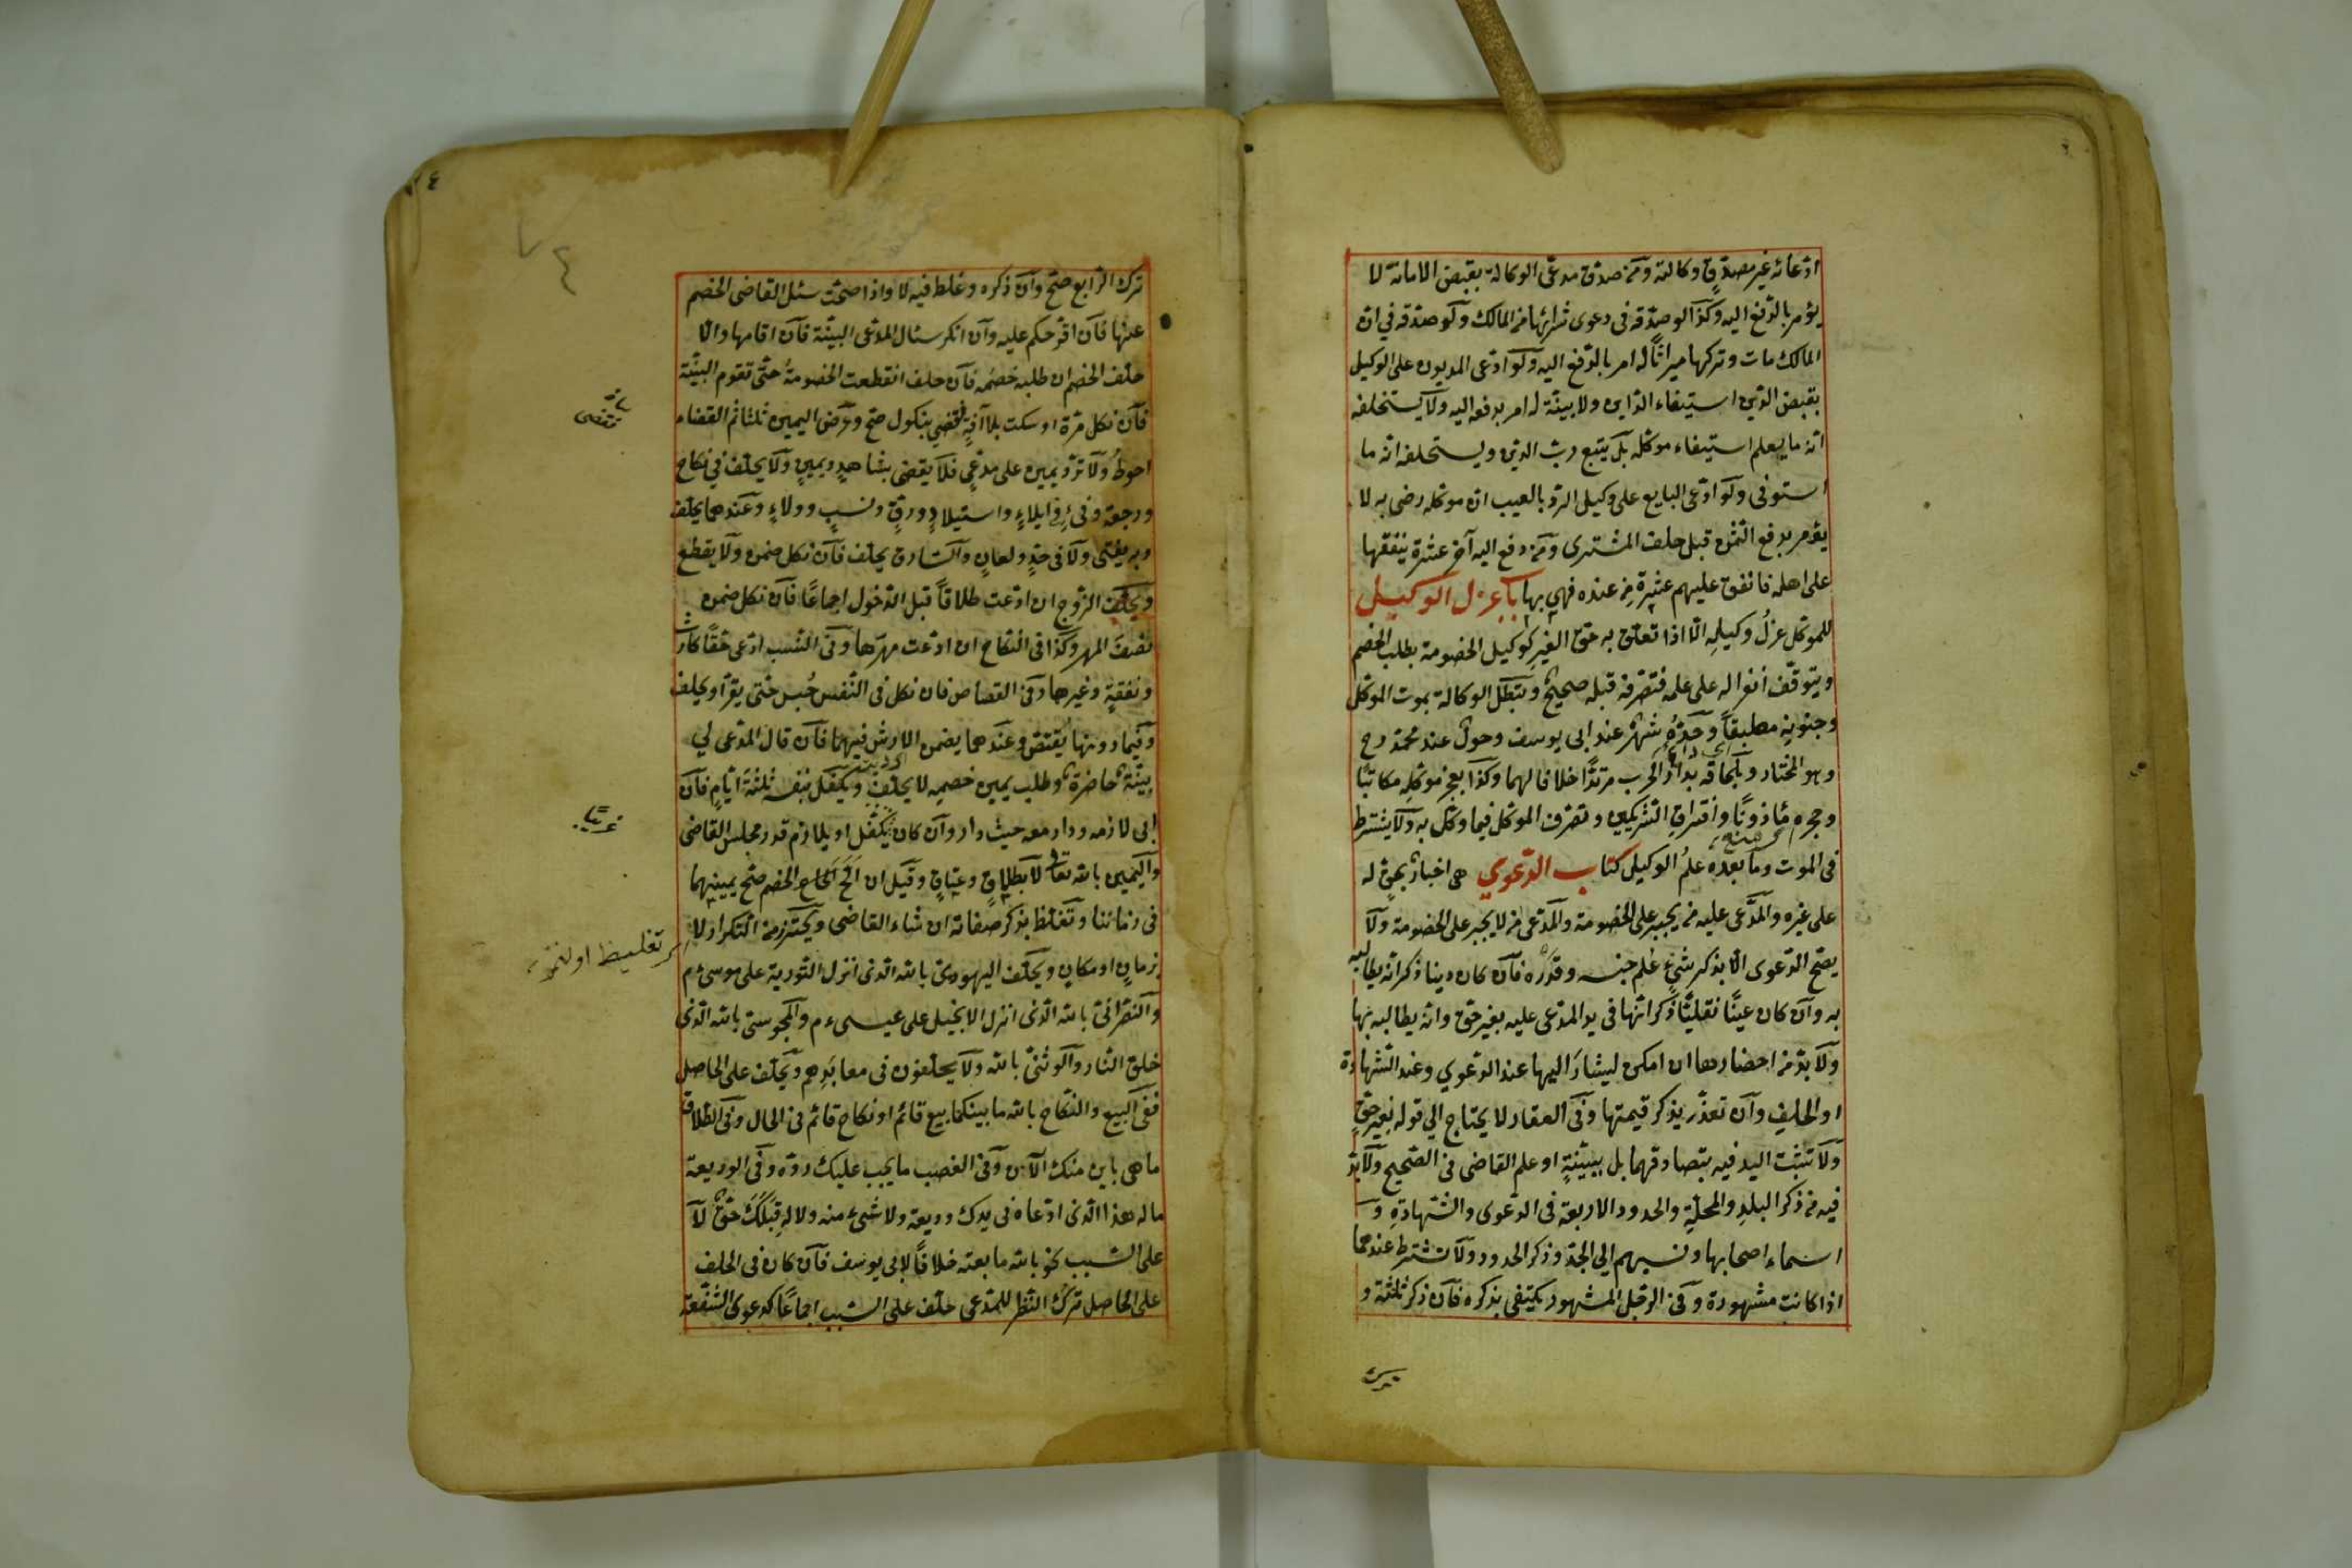 ادّعائه غير مصدّق وكالته ومن صدق مدعى الوكالة بقبض الامانة لا
يؤمر بالدفع اليه وكذا لو صدّقه فى دعوى شرائها من المالك ولو صدقه فى ان
المالك مات وتركها ميراثاً له امر بالدّفع اليه ولو ادّعى المديون على الوكيل
بقبض الدّين استيفاء الداين ولا بينة له امر بدفعه اليه ولا يستحلفه
انه ما يعلم استيفاء موكله بل يتبع ربّ الدين ويستحلفه انه ما
استوفى ولو ادّعى البايع على وكيل الردّ بالعيب ان موكله رضى به لا
يؤمر بدفع الثمن قبل حلف المشترى ومن دفع اليه آخر عشرة ينفقها
على اهله فانفق عليهم عشرة من عنده فهى بها باب عزل الوكيل
للموكل عزل وكيله الّا اذا تعلق به حق الغير كوكيل الخصومة بطلب الخصم
ويتوقّف انعزاله على علمه فتصرّفه قبله صحيح وتبطل الوكالة بموت الموكل
وجنونه مطبقاً وحدّه شهر عند ابى يوسف وحول عند محمّد رح
وهو المختار وبلحاقه بدار الحرب مرتدًّا خلافا لهما وكذا بعجز موكله مكاتبًا
وحجره مأذونًا وافتراق الشريكين وتصرف الموكل فيما وكل به ولا يشترط
فى الموت وما بعده علم الوكيل كتاب الدّعوي هى اخبار بحق له
على غيره والمدّعى عليه من يجبر على الخصومة والمدّعى من لا يجبر على الخصومة ولا
يصّح الدّعوى الّا بذكر شئ علم جنسه وقدره فان كان دينا ذكر انه يطالبه
به وان كان عينًا نقليًّا ذكر انّها فى يد المدّعى عليه بغير حق وانه يطالبه بها
ولا بدّ من احضارها ان امكن ليشار اليها عند الدّعوي وعند الشهادة
او الحلف وان تعذّر يذكر قيمتها وفى العقار لا يحتاج الي قوله بغير حق
ولا تثبت اليد فيه بتصادقهما بل ببينة او علم القاضى فى الصّحيح ولا بدّ
فيه من ذكر البلد والمحلّة والحدود الاربعة فى الدّعوى والشّهادة و
اسماء اصحابها ونسبهم الي الجدّ وذكر الحدود ولا تشترط عندهما
اذا كانت مشهورة وفى الرّجل المشهور يكتفى بذكره فان ذكر ثلثة و
ترك
ترك الرّابع صّح وان ذكره وغلط فيه لا واذا صحّت سئل القاضى الخصم
عنها فان اقرّ حكم عليه وان انكر سئال المدّعى البيّنة فان اقامها والّا
حلّف الخصم ان طلبه خصمه فان حلف انقطعت الخصومة حتّى تقوم البيّنة
فان نكل مرّة او سكت بلا آفة فقضى بنكول صح وعرض اليمين ثلثا ثم القضاء
احوط ولا تردّ يمين على مدّعى فلا يقضى بشاهد ويمين ولا يحلّف فى نكاح
ورجعة وفئ ايلاء واستيلاد ورقّ ونسب وولاء وعندهما يحلف
وبه يفتى ولا فى حدّ ولعان والسّارق يحلّف فان نكل ضمن ولا يقطع
ويحلّف الزوج ان ادّعت طلاقاً قبل الدّخول اجماعًا فان نكل ضمن
نصف المهر وكذا فى النّكاح ان ادّعت مهرها وفى النّسب ادّعى حقًّا كارث
ونفقة وغيرهما وفى القصاص فان نكل فى النّفس حُبس حتى يقرّ او يحلف
وفيما دونها يُقتص وعندهما يضمن الارش فيهما فان قال المدّعى لي
بيّنة حاضرة وطلب يمين خصمه لا يحلّف ويكفل بنفسه ثلثة ايّام فان
ابى لازمه ودار معه حيث دار وان كان يكفل او يلازم قدر مجلس القاضى
واليمين بالله تعا لا بطلاق وعتاق وقيل ان الحّ الخصم صحّ يمينهما
فى زماننا وتغلظ بذكر صفاته ان شاء القاضى ويحترز من التكرار لا
بزمان او مكان ويحلّف اليهودى بالله الّذى انزل التورية على موسى ع م
والنّصرانى بالله الّذى انزل الانجيل على عيسى ع م والمجوسى بالله الّذى
خلق النّار والوثنىّ بالله ولا يحلّفون فى معابدهم ويحلّف على الحاصل
ففى البيع والنّكاح بالله ما بينكما بيع قائم او نكاح قائم فى الحال وفى الطّلاق
ما هى باين منك الآن وفى الغصب ما يجب عليك ردّه وفى الوديعة
ما له هذا الّذى ادّعاه فى يدك وديعة ولا شئ منه ولا له قبلك حق لا
على السّبب نحو بالله ما بعته خلافاً لابى يوسف فان كان فى الحلف
على الحاصل ترك النّظر للمدّعى حلّف على السّبب اجماعًا كدعوى الشّفعة
غريبًا